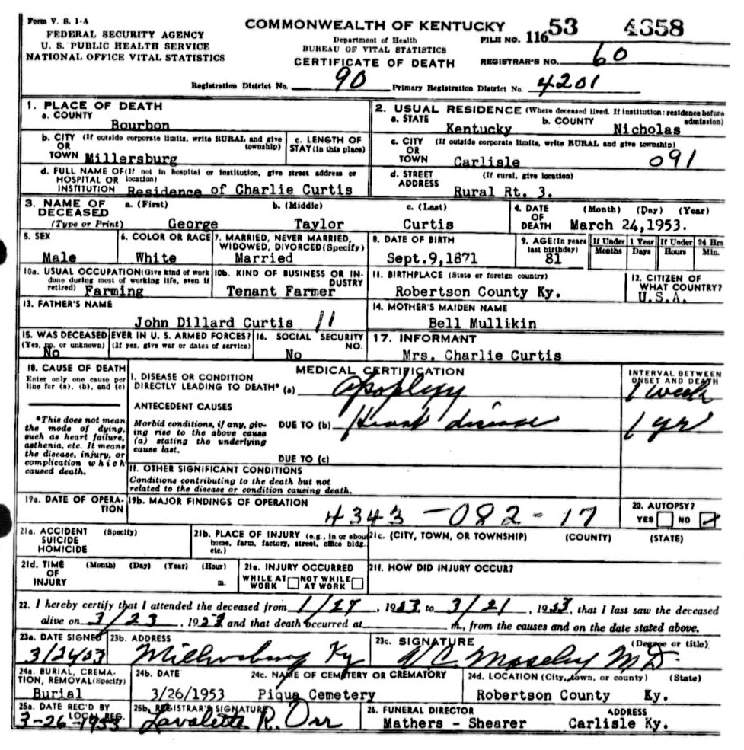 Form V. S. 1-A
FEDERAL SECURITY AGENCY
U. S. PUBLIC HEALTH SERVICE
NATIONAL OFFICE VITAL STATISTICS
COMMONWEALTH OF KENTUCKY
Department of Health
BUREAU OF VITAL STATISTICS
CERTIFICATE OF DEATH
FILE NO. 116 53 4358
REGISTRAR'S NO. 60
Registration District No. 90 Primary Registration District No. 4201
1. PLACE OF DEATH
a. COUNTY
Bourbon
2. USUAL RESIDENCE (Where deceased lived. If institution: residence before admission)
a. STATE b. COUNTY
Kentucky Nicholas
b. CITY (If outside corporate limits, write RURAL and give township)
OR
TOWN Millersburg
c. LENGTH OF STAY (in this place)
c. CITY (If outside corporate limits, write RURAL and give township)
OR
TOWN Carlisle 091
d. FULL NAME OF (If not in hospital or institution, give street address or location)
HOSPITAL OR
INSTITUTION Residence of Charlie Curtis
d. STREET ADDRESS (If rural, give location)
Rural Rt. 3.
3. NAME OF DECEASED
(Type or Print)
a. (First) b. (Middle) c. (Last)
George Taylor Curtis
4. DATE OF DEATH (Month) (Day) (Year)
March 24,1953.
5. SEX
Male
6. COLOR OR RACE
White
7. MARRIED, NEVER MARRIED, WIDOWED, DIVORCED (Specify)
Married
8. DATE OF BIRTH
Sept.9,1871
9. AGE (In years last birthday)
81
If Under 1 Year
Months Days
If Under 24 Hrs
Hours Min.
10a. USUAL OCCUPATION (Give kind of work done during most of working life, even if retired)
Farming
10b. KIND OF BUSINESS OR INDUSTRY
Tenant Farmer
11. BIRTHPLACE (State or foreign country)
Robertson County Ky.
12. CITIZEN OF WHAT COUNTRY?
U.S.A.
13. FATHER'S NAME
John Dillard Curtis 11
14. MOTHER'S MAIDEN NAME
Bell Mullikin
15. WAS DECEASED EVER IN U. S. ARMED FORCES?
(Yes, no, or unknown) (If yes, give war or dates of service)
No
16. SOCIAL SECURITY NO.
No
17. INFORMANT
Mrs. Charlie Curtis
18. CAUSE OF DEATH
Enter only one cause per line for (a), (b), and (c)
MEDICAL CERTIFICATION
INTERVAL BETWEEN ONSET AND DEATH
I. DISEASE OR CONDITION
DIRECTLY LEADING TO DEATH* (a) Apoplexy 1 week
*This does not mean the mode of dying, such as heart failure, asthenia, etc. It means the disease, injury, or complication which caused death.
ANTECEDENT CAUSES
Morbid conditions, if any, giving rise to the above cause (a) stating the underlying cause last.
DUE TO (b) Heart disease 1 yr
DUE TO (c)
II. OTHER SIGNIFICANT CONDITIONS
Conditions contributing to the death but not
related to the disease or condition causing death.
19a. DATE OF OPERATION
19b. MAJOR FINDINGS OF OPERATION
4343-082-17
20. AUTOPSY?
YES NO
21a. ACCIDENT SUICIDE HOMICIDE (Specify)
21b. PLACE OF INJURY (e.g., in or about home, farm, factory, street, office bldg. etc.)
21c. (CITY, TOWN, OR TOWNSHIP) (COUNTY) (STATE)
21d. TIME OF INJURY (Month) (Day) (Year) (Hour)
m.
21e. INJURY OCCURRED
WHILE AT WORK NOT WHILE AT WORK
21f. HOW DID INJURY OCCUR?
22. I hereby certify that I attended the deceased from 1/27, 1953 to 3/21, 1953, that I last saw the deceased
alive on 3/23, 1953 and that death occurred at m., from the causes and on the date stated above.
23a. DATE SIGNED
3/24/53
23b. ADDRESS
Millersburg Ky
23c. SIGNATURE (Degree or title)
W C Moseley M.D.
24a. BURIAL, CREMATION, REMOVAL (Specify)
Burial
24b. DATE
3/26/1953
24c. NAME OF CEMETERY OR CREMATORY
Piqua Cemetery
24d. LOCATION (City, town, or county) (State)
Robertson County Ky.
25a. DATE REC'D BY LOCAL REG.
3-26-1953
25b. REGISTRAR'S SIGNATURE
Lavalette R. Orr
26. FUNERAL DIRECTOR ADDRESS
Mathers - Shearer Carlisle Ky.